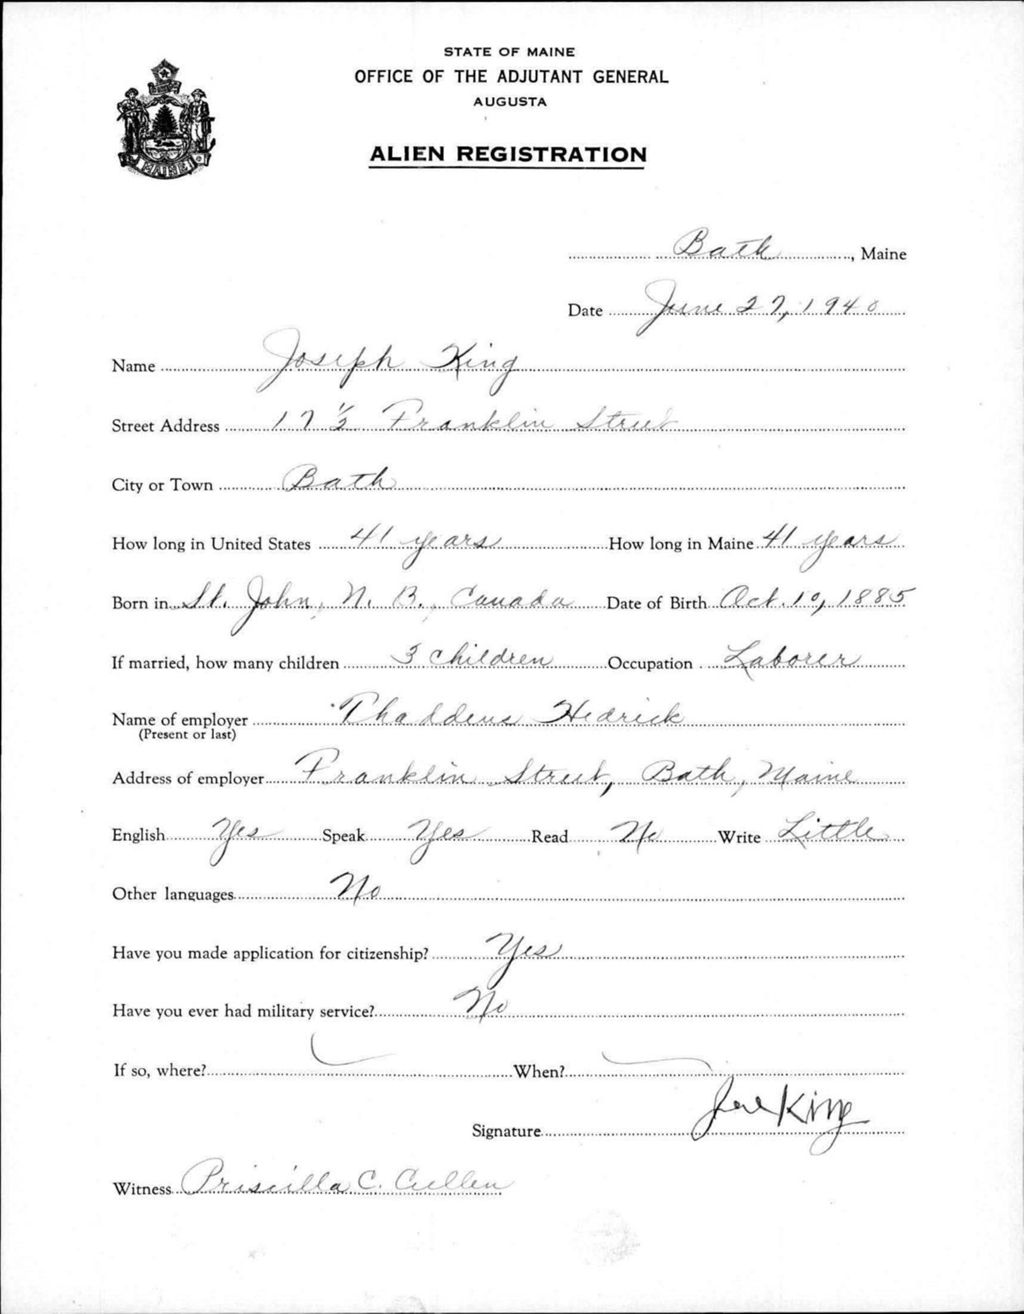 STATE OF MAINE
OFFICE OF THE ADJUTANT GENERAL
AUGUSTA
ALIEN REGISTRATION
MAINE
Bath, Maine
Date June 27, 1940
Name Joseph King
Street Address 17 1/2 Franklin Street
City or Town Bath
How long in United States 41 years How long in Maine 41 years
Born in St. John, N. B., Canada Date of Birth Oct. 10, 1885
If married, how many children 3 children Occupation Laborer
Name of employer Thaddeus Hedrick
(Present or last)
Address of employer Franklin Street, Bath, Maine
English Yes Speak Yes Read No Write Little
Other languages No
Have you made application for citizenship? Yes
Have you ever had military service? No
If so, where? When?
Signature Joe King
Witness Priscilla C. Cullen